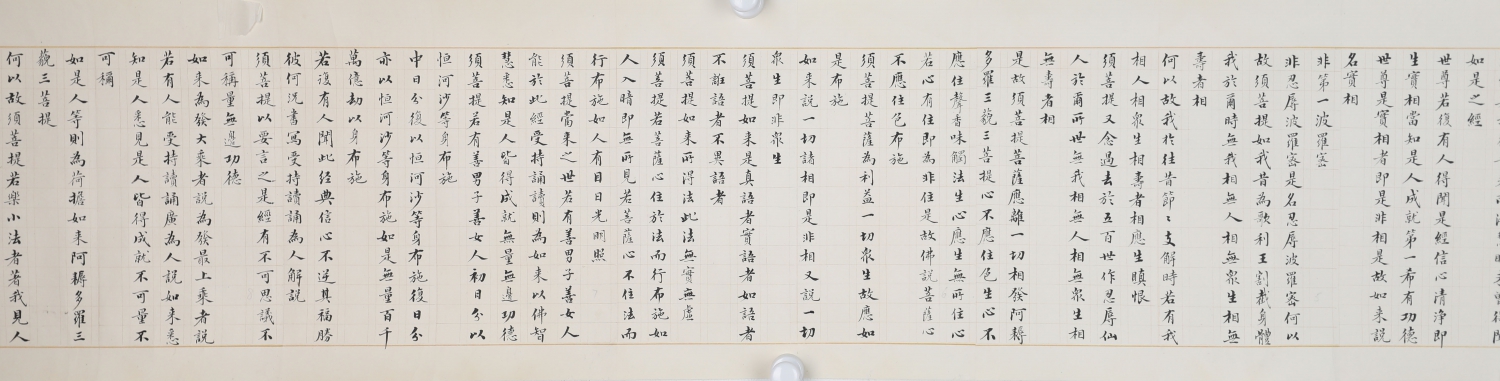 如是之經
世尊若復有人得聞是經信心清淨即
生實相當知是人成就第一希有功德
世尊是實相者即是非相是故如來説
名實相
非第一波羅蜜
非忍辱波羅蜜是名忍辱波羅蜜何以
故須菩提如我昔為歌利王割截身體
我於爾時無我相無人相無衆生相無
壽者相
何以故我於往昔節〻支解時若有我
相人相衆生相壽者相應生瞋恨
須菩提又念過去於五百世作忍辱仙
人於爾所世無我相無人相無衆生相
無壽者相
是故須菩提菩薩應離一切相發阿耨
多羅三藐三菩提心不應住色生心不
應住聲香味觸法生心應生無所住心
若心有住即為非住是故佛説菩薩心
不應住色布施
須菩提菩薩為利益一切衆生故應如
是布施
如来説一切諸相即是非相又説一切
衆生即非衆生
須菩提如来是真語者實語者如語者
不誑語者不異語者
須菩提如来所得法此法無實無虛
須菩提若菩薩心住於法而行布施如
人入暗即無所見若菩薩心不住法而
行布施如人有目日光明照
須菩提當来之世若有善男子善女人
能於此經受持誦讀則為如来以佛智
慧悉知是人皆得成就無量無邊功德
須菩提若有善男子善女人初日分以
恒河沙等身布施
中日分復以恒河沙等身布施後日分
亦以恒河沙等身布施如是無量百千
萬億劫以身布施
若復有人聞此經典信心不逆其福勝
彼何况書寫受持讀誦為人解説
須菩提以要言之是經有不可思議不
可稱量無邊功德
如来為發大乘者説為發最上乘者説
若有人能受持讀誦廣為人説如来悉
知是人悉見是人皆得成就不可量不
可稱
如是人人等則為荷擔如来阿耨多羅三
藐三菩提
何以故須菩提若樂小法者著我見人